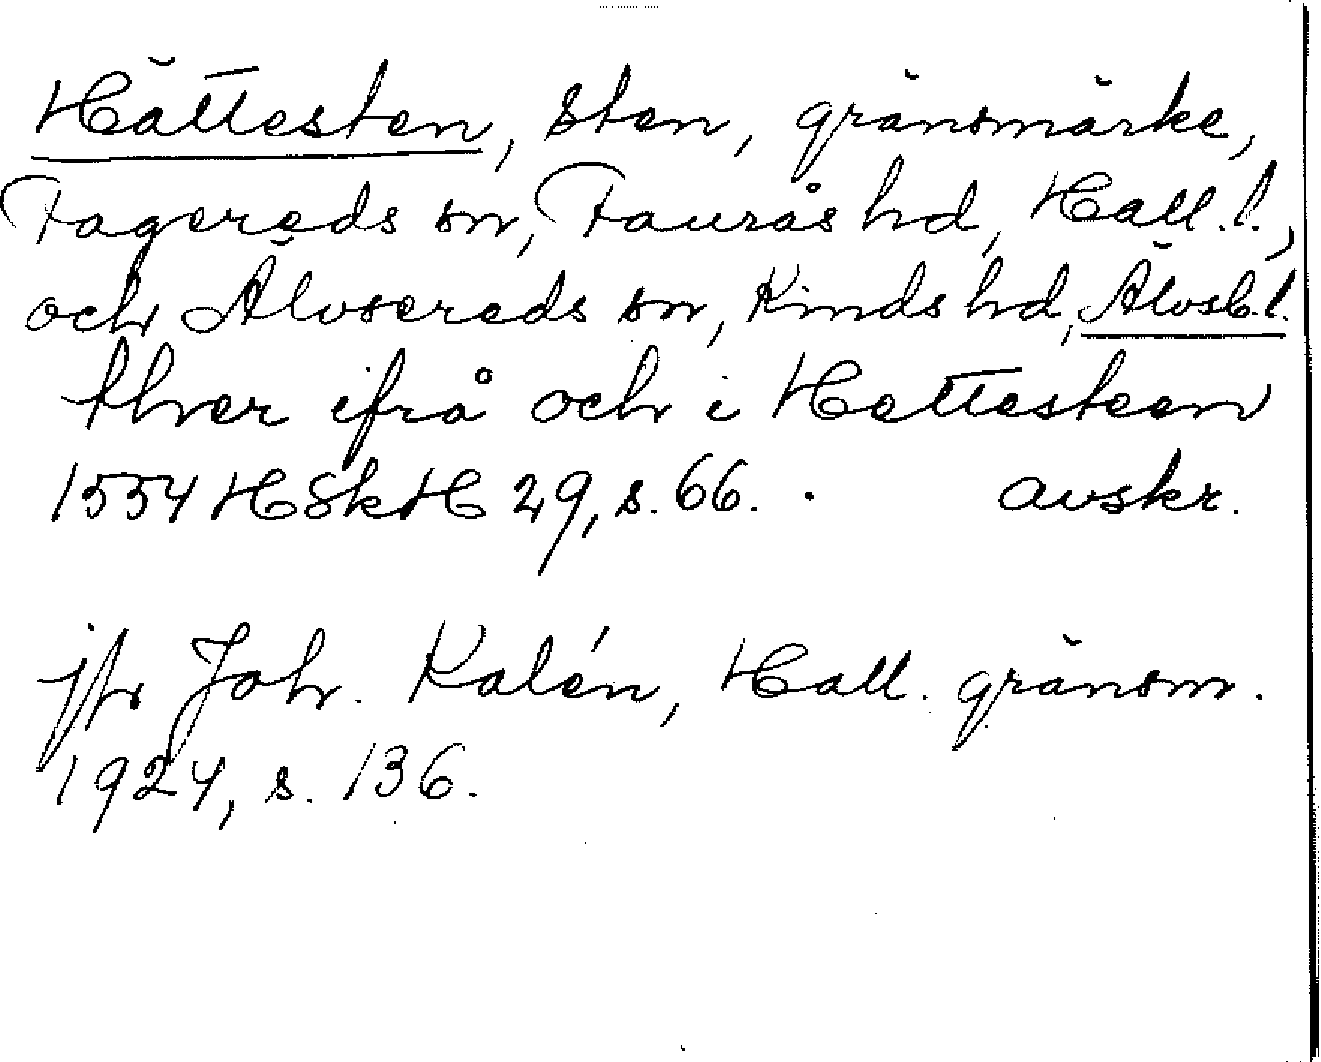 Hättesten, sten, gränsmärke,
Fagereds sn, Faurås hd, Hall. l.,
och Älvsereds sn, Kinds hd, Älvsb. l.
thver ifrå och i Hettesteen
1554 HSkH 29, s. 66. avskr.
jfr Joh. Kalén, Hall. gränsm.
1924, s. 136.